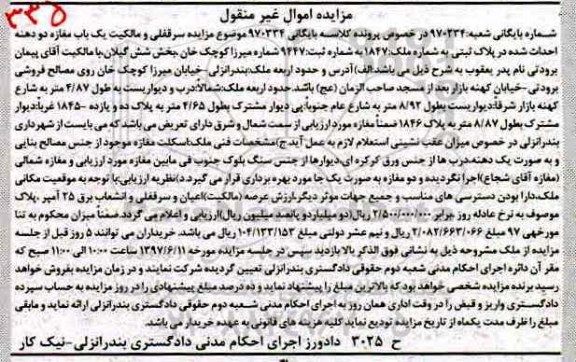 ۳۳۵
مزایده اموال غیر منقول
شماره بایگانی شعبه: ۹۷۰۳۳۴ در خصوص پرونده کلاسه بایگانی ۹۷۰۳۳۴ موضوع مزایده سرقفلی و مالکیت یک باب مغازه دو دهنه
احداث شده در پلاک ثبتی به شماره ملک: ۱۸۴۷ به شماره ثبت: ۹۴۴۷ شماره میرزا کوچک خان، بخش شش گیلان، با مالکیت آقای پیمان
برودتی نام پدر یعقوب به شرح ذیل می باشد: الف) آدرس و حدود اربعه ملک: بندرانزلی - خیابان میرزا کوچک خان روی مصالح فروشی
برودتی - خیابان کهنه بازار بعد از مسجد صاحب الزمان (عج) باشد. حدود اربعه ملک: شمالاً: درب و دیواریست به طول ۴/۸۷ متر به شارع
کهنه بازار شرقاً: دیواریست بطول ۸/۹۲ متر به شارع عام جنوباً: پی دیوار مشترک بطول ۴/۶۵ متر به پلاک ده و یازده - ۱۸۴۵ غرباً: دیوار
مشترک بطول ۸/۸۷ متر به پلاک ۱۸۴۶ ضمناً مغازه مورد ارزیابی از سمت شمال و شرق دارای تعریض می باشد که می بایست از شهرداری
بندرانزلی در خصوص میزان عقب نشینی استعلام لازم به عمل آید. ج) مشخصات فنی ملک: اسکلت مغازه موجود از جنس مصالح بنایی
و به صورت یک دهنه، درب ها از جنس ورق کرکره ای، دیوارها از جنس سنگ بلوک جنوب فی مابین مغازه مورد ارزیابی و مغازه شمالی
(مغازه آقای شجاع) اجرا نگردیده و دو مغازه به صورت یک جا مورد بهره برداری قرار می گیرد. د) نظریه ارزیابی: با توجه به موقعیت مکانی
ملک، دارا بودن دسترسی های مناسب و جمیع جهات موثر دیگر، ارزش عرصه (مالکیت) اعیان و سرقفلی و انشعاب برق ۲۵ آمپر، پلاک
موصوف به نرخ عادله روز، برابر ۲/۵۰۰/۰۰۰/۰۰۰ ریال (دو میلیارد و پانصد میلیون ریال) ارزیابی و اعلام می گردد. ضمناً میزان محکوم به تنا
مورخهی ۹۷ مبلغ ۲/۰۸۲/۶۶۳/۰۶۶ ریال و نیم عشر دولتی مبلغ ۱۰۴/۱۳۳/۱۵۳ ریال می باشد. خریداران می توانند ۵ روز قبل از جلسه
مزایده از ملک مشروحه ذیل به نشانی فوق الذکر بالا بازدید سپس در جلسه مزایده مورخه ۱۳۹۷/۶/۱۱ ساعت ۱۰:۰۰ الی ۱۱:۰۰ صبح که
مقر آن دائره اجرای احکام مدنی شعبه دوم حقوقی دادگستری بندرانزلی تعیین گردیده شرکت نمایند و در زمان مزایده بفروش خواهد
رسید برنده مزایده شخصی خواهد بود که بالاترین مبلغ را پیشنهاد نماید و ده درصد مبلغ پیشنهادی را در روز مزایده به حساب سپرده
دادگستری واریز و فیض را در وقت اداری همان روز به اجرای احکام مدنی شعبه دوم حقوقی دادگستری بندرانزلی ارائه نماید و مابقی
مبلغ را ظرف مدت یکماه از تاریخ مزایده تودیع نماید کلیه هزینه های قانونی به عهده خریدار می باشد.
ح ۳۰۲۵ دادورز اجرای احکام مدنی دادگستری بندرانزلی - نیک کار